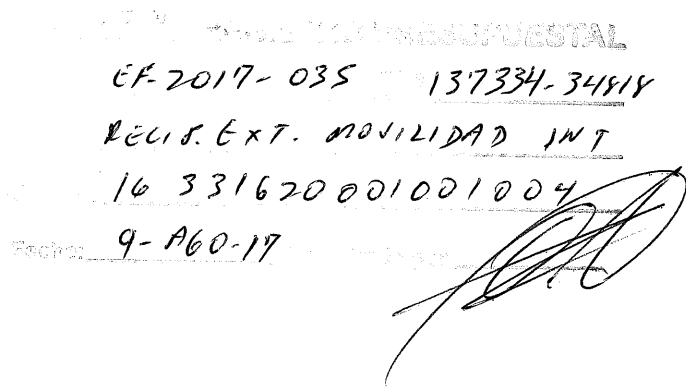 PRESUPUESTAL
EF-2017-035 137334-34818
RECUR. EXT. MOVILIDAD INT
16 331620001001004
9-AGO-17
Fecha: